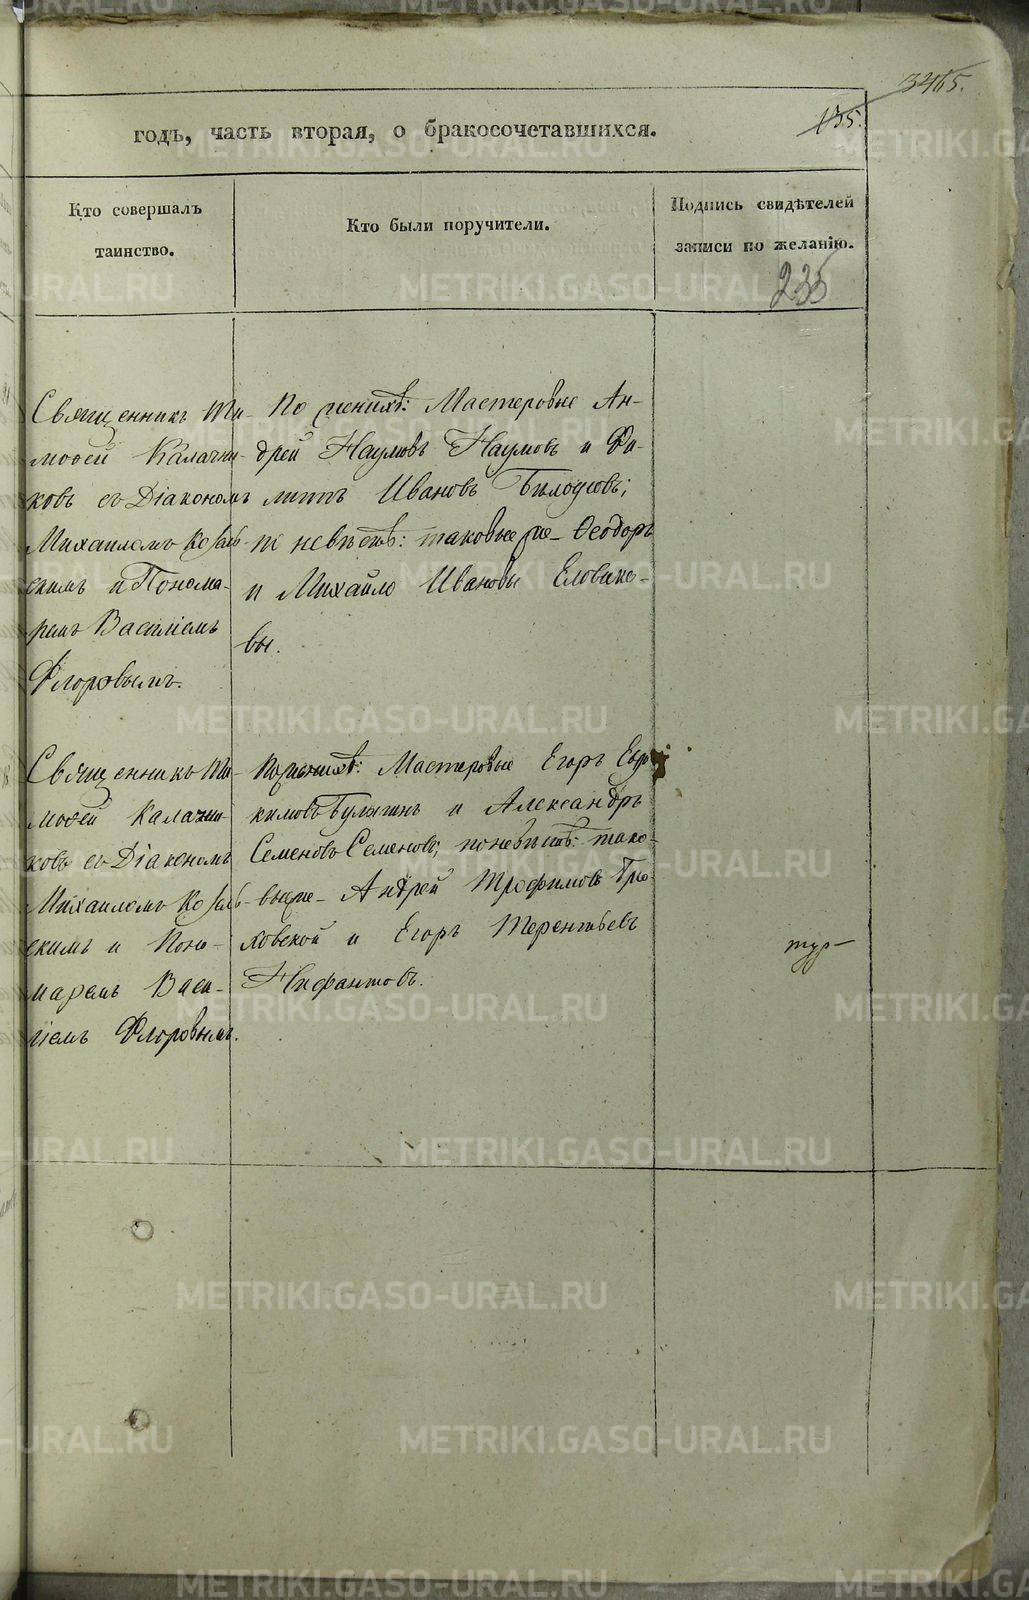 3465.
135.
годъ, часть вторая, о бракосочетавшихся.
Кто совершалъ
таинство.
Кто были поручители.
Подпись свидѣтелей
записи по желанію.
235
Священникъ Ти-
моѳей Калачни-
ковъ съ Діакономъ
Михаиломъ
скимъ и Понома-
ремъ Василіемъ
Флоровымъ.
По женихѣ: Мастеровые Ан-
дрей Наумовъ Наумовъ и Фи-
липъ Ивановъ Бѣлоусовъ;
по невѣстѣ: таковые же Ѳеодоръ
и Михайло Ивановы Еловико-
вы.
Священникъ Ти-
моѳей Калачни-
ковъ съ Діакономъ
Михаиломъ
скимъ и Поно-
маремъ Васи-
ліемъ Флоровымъ.
По женихѣ: Мастеровые Егоръ
кимовъ Булыгинъ и Александръ
Семеновъ Семеновъ; по невѣстѣ: тако-
вые же Андрей Трофимовъ
ховской и Егоръ Терентьевъ
Нифантовъ.
METRIKI.GASO-URAL.RU